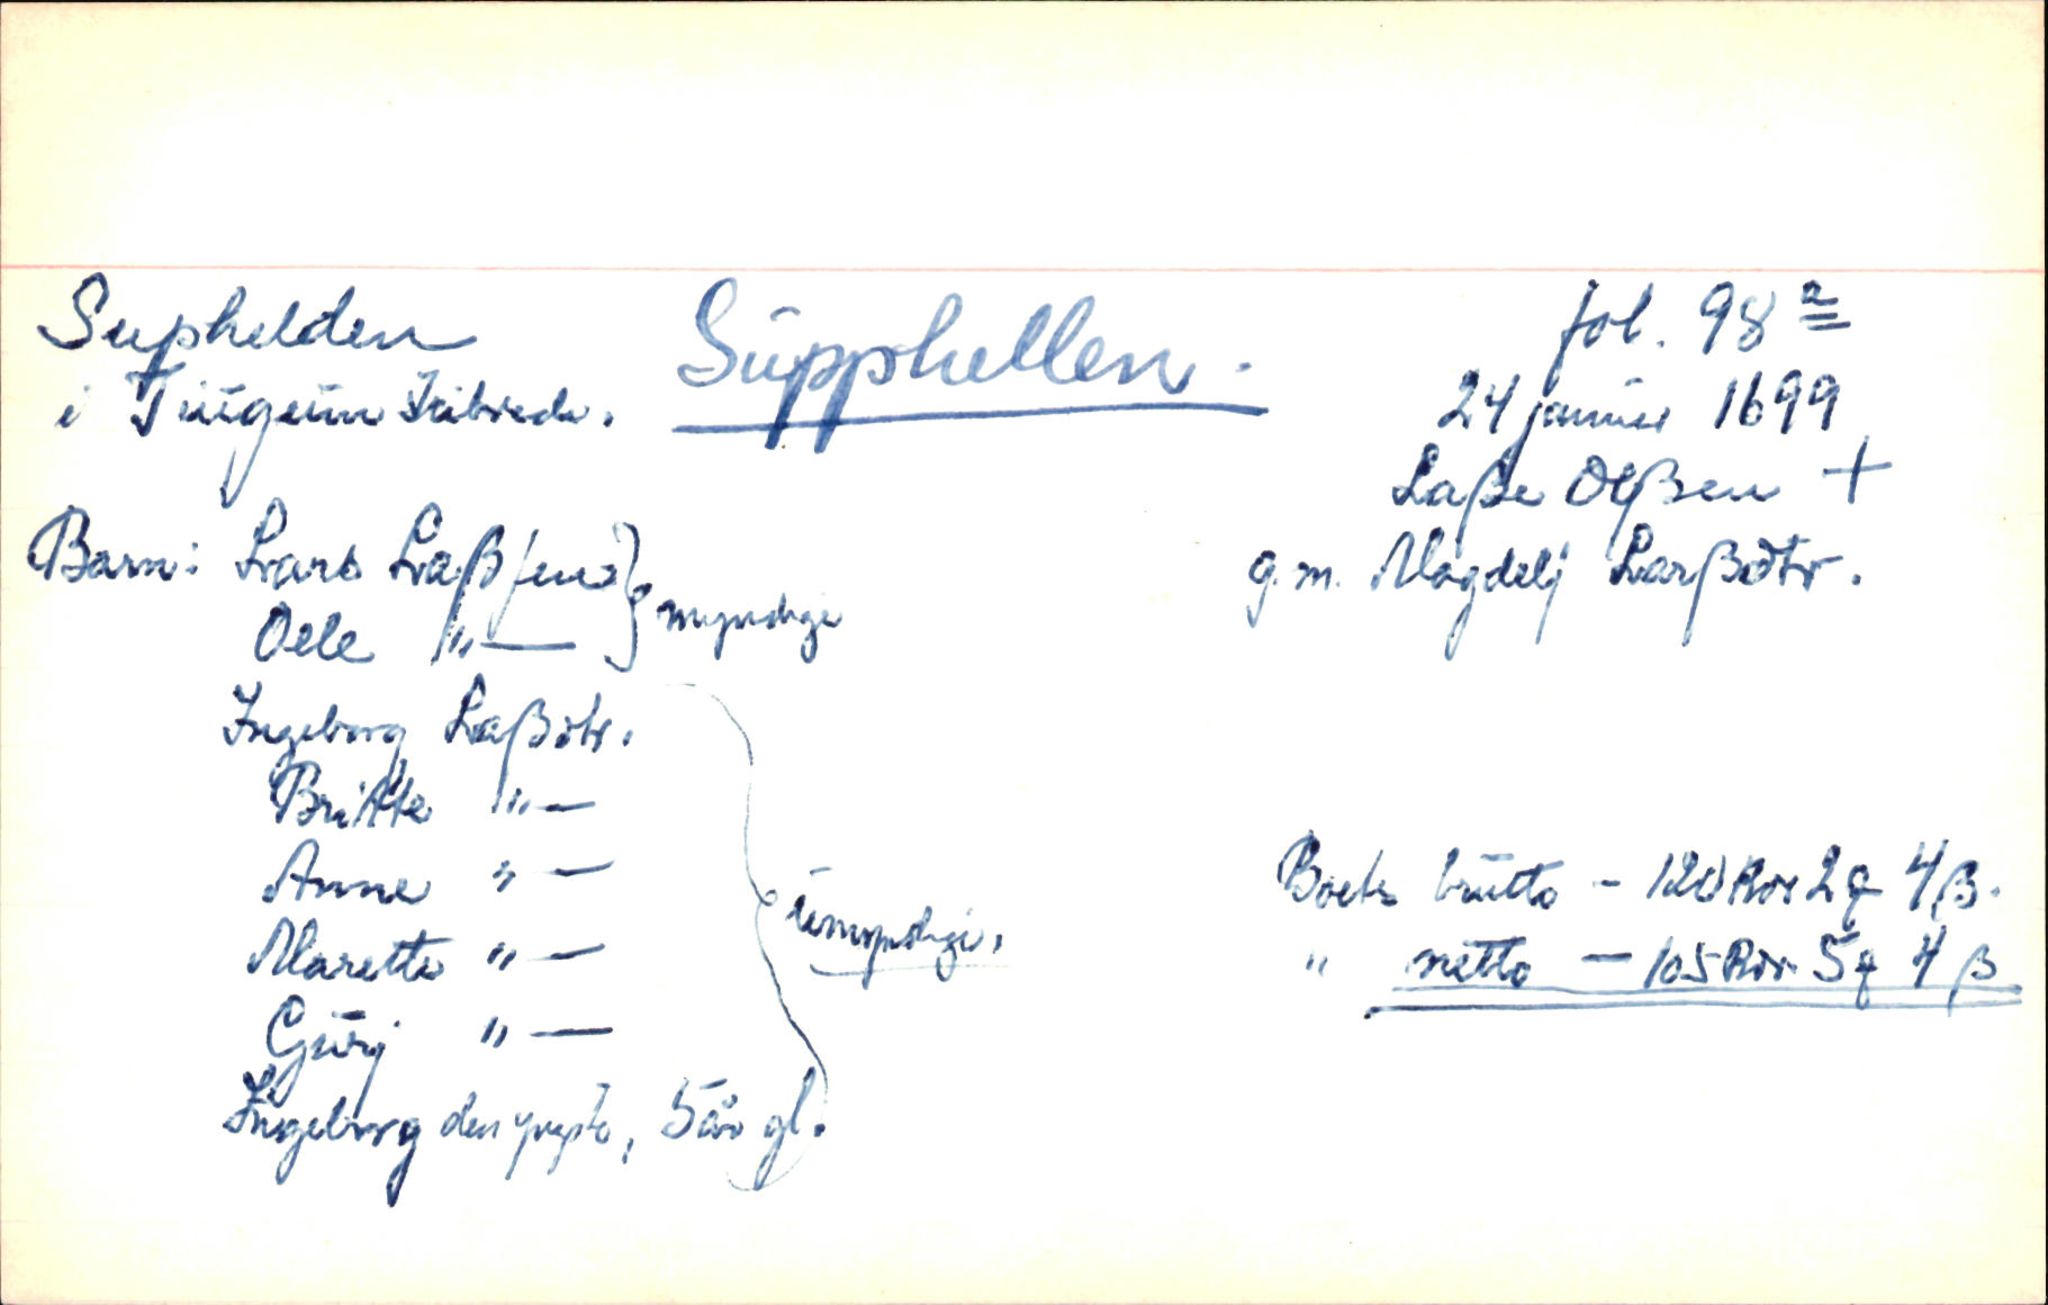 Suphelden
i Tiugum Schibrede.
Supphellen.
fol. 98 a
24 januar 1699
Laße Olßen +
g.m. Magdelj Larßdtr.
Barn: Lars Laßsens } myndige
Oele " —
Ingeborg Laßdtr.
Britte " —
Anne " —
Marette " —
Gurj " —
Ingeborg den yngste, 5 år gl.
umyndige.
Boets brutto – 120 Rdr 2 q 4 ß.
" netto – 105 Rdr. 5 q 4 ß